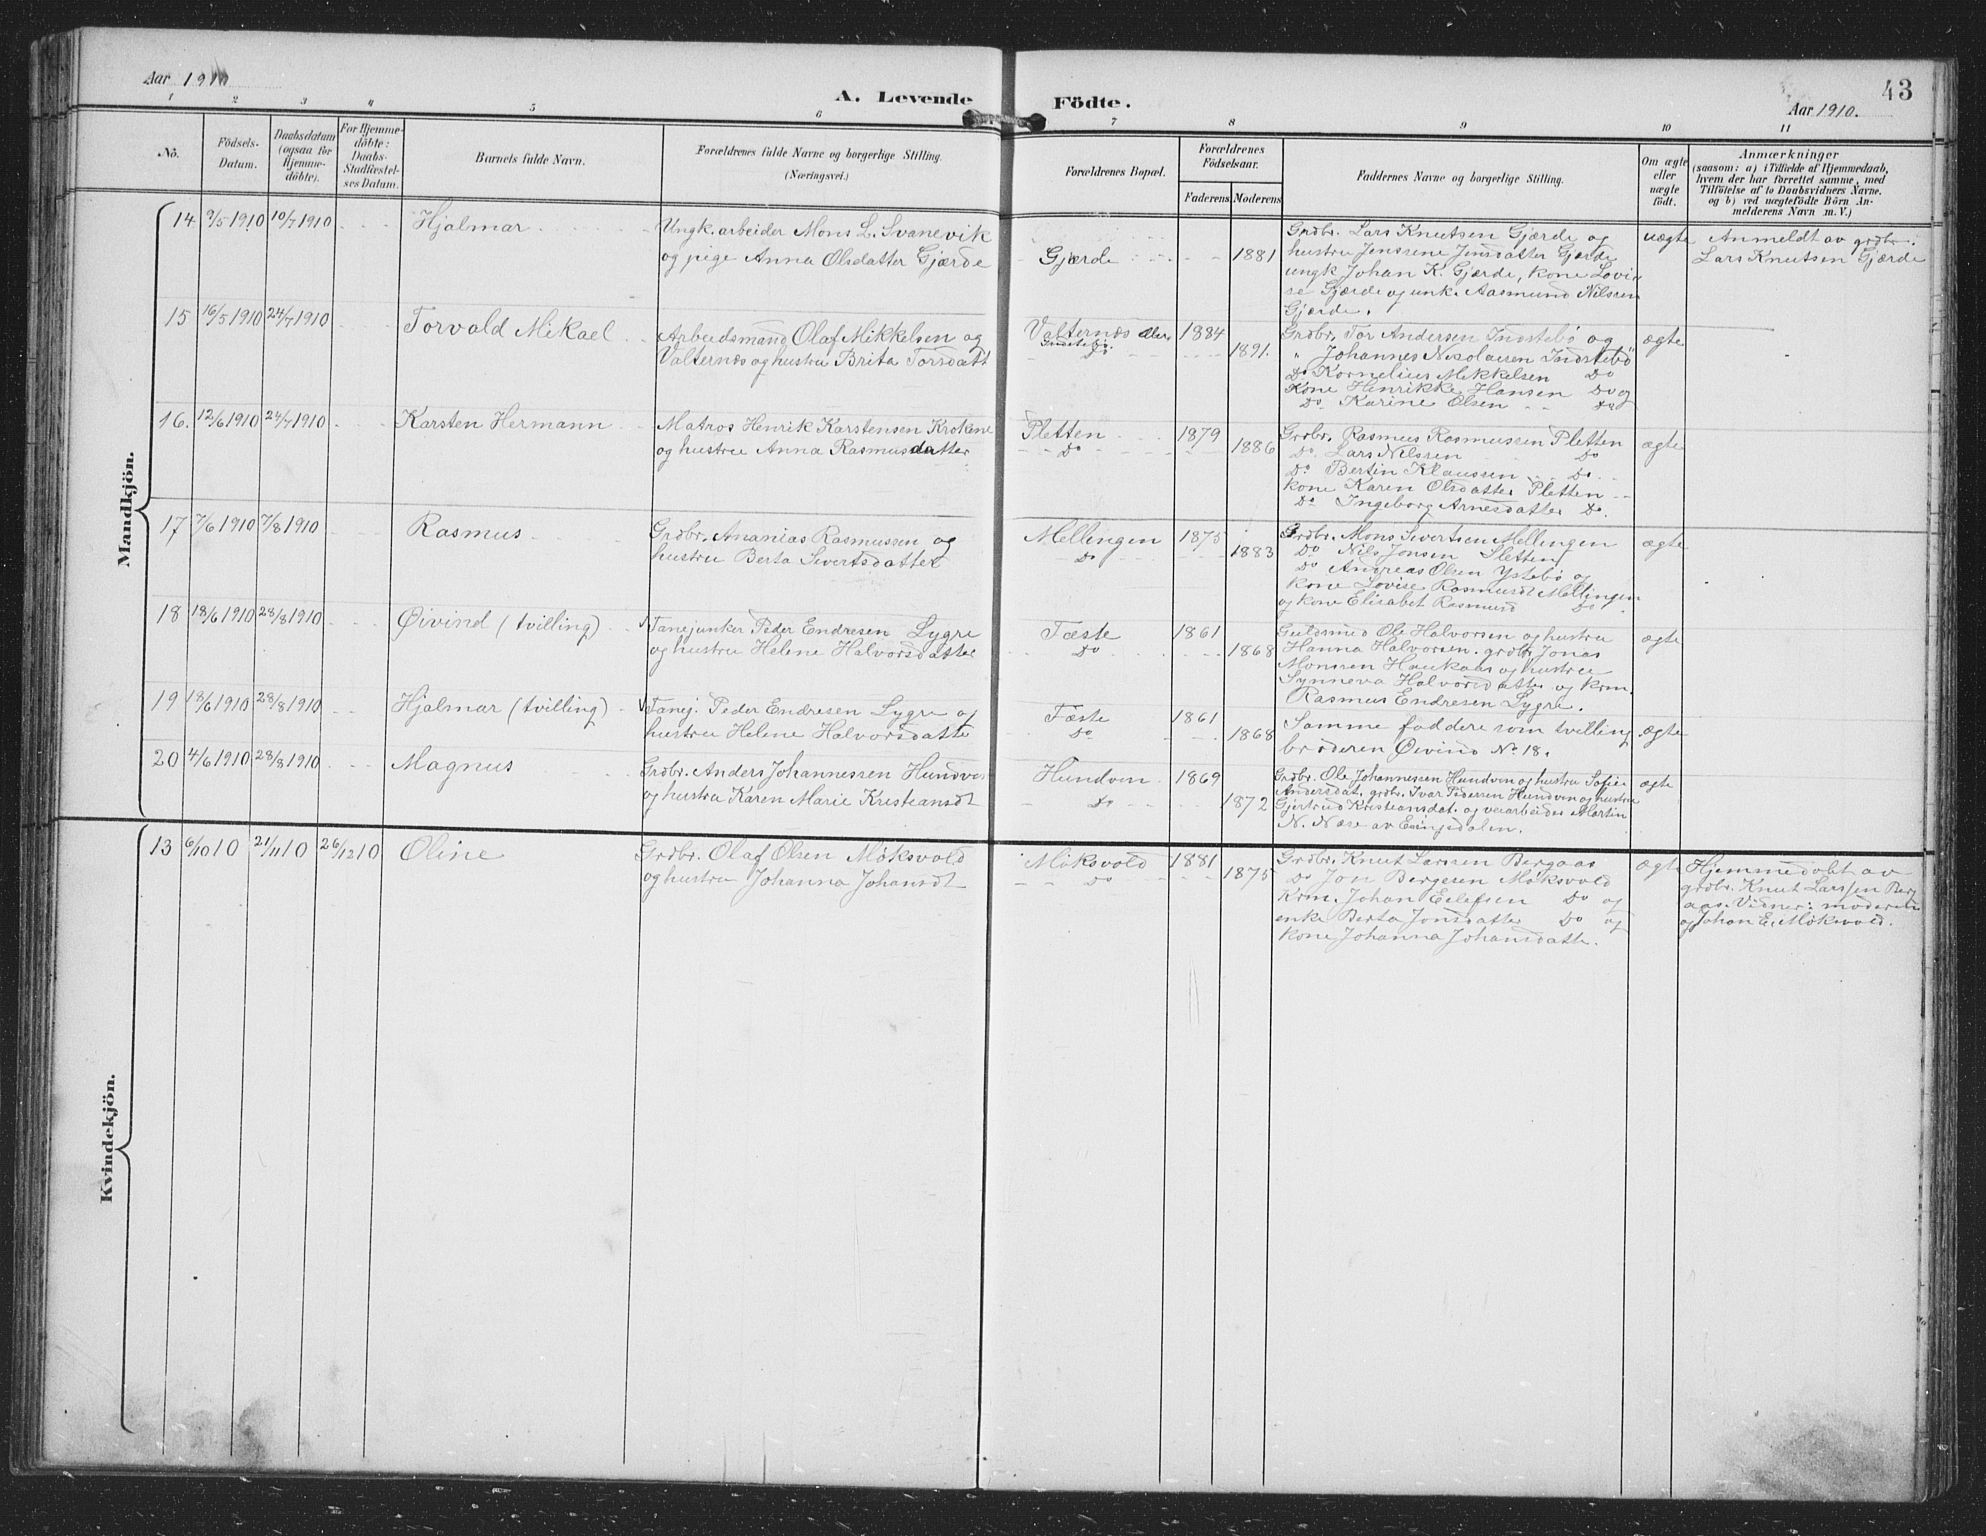 Aar 1910
A. Levende Födte.
43
Aar 1910.
1 2 3 4 5 6 7 8 9 10 11
No.
Födsels-Datum.
Daabsdatum (ogsaa for Hjemme-döbte).
For Hjemme-döbte: Daabs-Stadfæstel-ses Datum.
Barnets fulde Navn.
Forældrenes fulde Navne og borgerlige Stilling.
(Næringsvei.)
Forældrenes Bopæl.
Forældrenes Födselsaar.
Faderens
Moderens
Faddernes Navne og borgerlige Stilling.
Om ægte eller uægte födt.
Anmærkninger
(saasom: a) i Tilfælde af Hjemmedaab,
hvem der har forrettet samme, med
Tilföielse af to Daabsvidners Navne,
og b) ved uægtefödte Börn An-
melderens Navn m. V.)
Mandkjön.
14. 9/5 1910 10/7 1910 Hjalmar
Ungk. arbeider Mons L. Svanevik
og pige Anna Olsdatter Gjærde
Gjærde 1881
Grdbr. Lars Knutsen Gjærde og
hustru Jenssene Jensdatter Gjærde
ungk Johan K. Gjærde, kone Lovi-
se Gjærde og unk. Aasmund Nilssen
Gjærde.
uægte
Anmeldt av grdbr.
Lars Knutsen Gjærde
15 16/5 1910 24/7 1910 Torvald Mikael
Arbeidsmand Olaf Mikkelsen og
Valternæs og hustru Brita Torsdatt
Valternæs
Do
1884 1891.
Grdbr. Tor Andersen Indstebö og
" Johannes Nicolaisen Indstebö"
Do Kornelius Mikkelsen Do
Kone Henrikke Hansen Do og
Do Karine Olsen Do
ægte
16. 12/6 1910 24/7 1910 Karsten Hermann
Matros Henrik Karstensen Krokene
og hustru Anna Rasmusdatter
Pletten
Do
1879 1886
Grdbr. Rasmus Rasmussen Pletten
Do. Lars Nilssen Do
Do Bertin Klaussen Do
kone Karen Olsdatter Pletten
Do Ingeborg Arnesdatter Do.
ægte
17 7/6 1910 7/8 1910 Rasmus
Grdbr. Ananias Rasmussen og
hustru Berta Sivertsdatter
Mellingen
Do
1875 1883
Grdbr. Mons Sivertsen Mellingen
Do Nils Jonsen Sletten
Do Andreas Olsen Ystebö og
kone Lovise Rasmusdt Mellingen
og kone Elisabet Rasmusd Do
ægte
18 18/6 1910 28/8 1910 Øivind (tvilling)
Fanejunker Peder Endresen Lygre
og hustru Helene Halvorsdatter
Fæste
Do
1861 1868
Guldsmed Ole Halvorsen og hustru
Hanna Halvorsen. grdbr. Jonas
Monssen Haukaas og hustru
Synneva Halvorsdatter og krm.
Rasmus Endresen Lygre.
ægte
19 18/6 1910 28/8 1910 Hjalmar (tvilling)
Fanej: Peder Endresen Lygre og
hustru Helene Halvorsdatte
Fæste
Do
1861 1868
Samme faddere som tvilling
broderen Øivind No 18.
ægte
20 4/6 1910 28/8 1910 Magnus
Grdbr. Anders Johannessen Hundven
og hustru Karen Marie Kristiansdt
Hundven
Do
1869 1872
Grdbr. Ole Johannessen Hundven og hustru Sofie
Andersdat. grdbr. Ivar Pedersen Hundven og hustru
Gjertrud Kristiansdat. og veiarbeider Martin
N. Næse av Eivigsdalen.
ægte
Kvindekjön.
13 6/10 10 21/11 10 26/12 10 Oline
Grdbr. Olaf Olsen Möksvold
og hustru Johanna Johansdt
Möksvold
Do
1881 1875
Grdbr. Knut Larssen Bergaas
Do Jon Bergesen Möksvold
Krm. Johan Eilefsen Do og
enke Berta Jonsdatter Do og
kone Johanna Johansdatte.
ægte
Hjemmedöbt av
grdbr. Knut Larssen Berg
aas. Vidner: moderen
og Johan E. Mökvold.